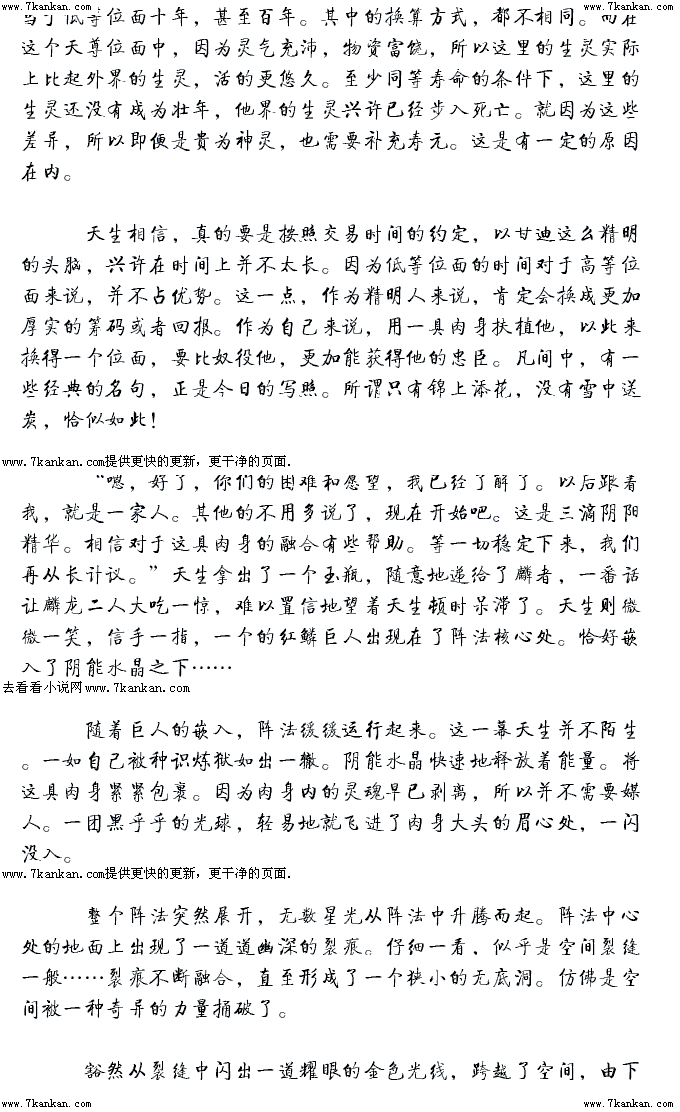 www.7kankan.com www.7kankan.com www.7kankan.com
当于低等位面十年，甚至百年。其中的换算方式，都不相同。而在
这个天尊位面中，因为灵气充沛，物资富饶，所以这里的生灵实际
上比起外界的生灵，活的更悠久。至少同等寿命的条件下，这里的
生灵还没有成为壮年，他界的生灵兴许已经步入死亡。就因为这些
差异，所以即便是贵为神灵，也需要补充寿元。这是有一定的原因
在内。
天生相信，真的要是按照交易时间的约定，以甘迪这么精明
的头脑，兴许在时间上并不太长。因为低等位面的时间对于高等位
面来说，并不占优势。这一点，作为精明人来说，肯定会换成更加
厚实的筹码或者回报。作为自己来说，用一具肉身扶植他，以此来
换得一个位面，要比奴役他，更加能获得他的忠臣。凡间中，有一
些经典的名句，正是今日的写照。所谓只有锦上添花，没有雪中送
炭，恰似如此！
www.7kankan.com提供更快的更新，更干净的页面.
“嗯，好了，你们的困难和愿望，我已经了解了。以后跟着
我，就是一家人。其他的不用多说了，现在开始吧。这是三滴阴阳
精华。相信对于这具肉身的融合有些帮助。等一切稳定下来，我们
再从长计议。”天生拿出了一个玉瓶，随意地递给了麟者，一番话
让麟龙二人大吃一惊，难以置信地望着天生顿时呆滞了。天生则微
微一笑，信手一指，一个的红鳞巨人出现在了阵法核心处。恰好嵌
入了阴能水晶之下……
去看看小说网www.7kankan.com
随着巨人的嵌入，阵法缓缓运行起来。这一幕天生并不陌生
。一如自己被种识炼狱如出一辙。阴能水晶快速地释放着能量。将
这具肉身紧紧包裹。因为肉身内的灵魂早已剥离，所以并不需要媒
人。一团黑乎乎的光球，轻易地就飞进了肉身大头的眉心处，一闪
没入。
www.7kankan.com提供更快的更新，更干净的页面.
整个阵法突然展开，无数星光从阵法中升腾而起。阵法中心
处的地面上出现了一道道幽深的裂痕。仔细一看，似乎是空间裂缝
一般……裂痕不断融合，直至形成了一个狭小的无底洞。仿佛是空
间被一种奇异的力量捅破了。
豁然从裂缝中闪出一道耀眼的金色光线，跨越了空间，由下
www.7kankan.com www.7kankan.com www.7kankan.com